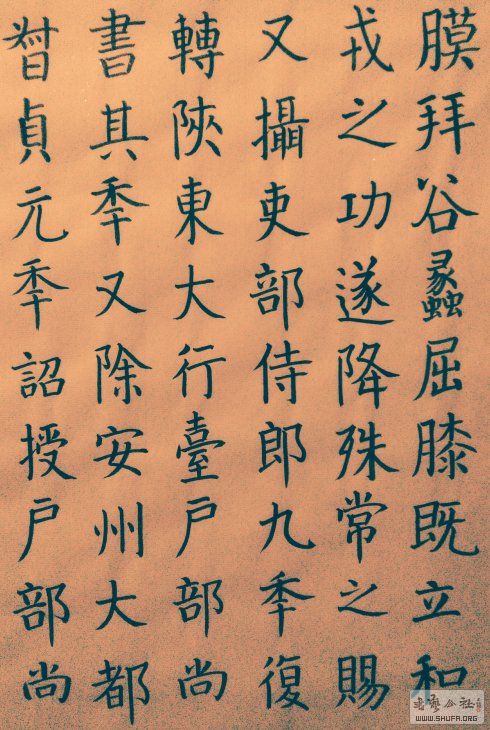 膜拜谷蠡屈膝既立和
戎之功遂降殊常之賜
又攝吏部侍郎九季復
轉陝東大行臺戶部尚
書其季又除安州大都
督貞元季詔授戶部尚
WWW.SHUFA.ORG